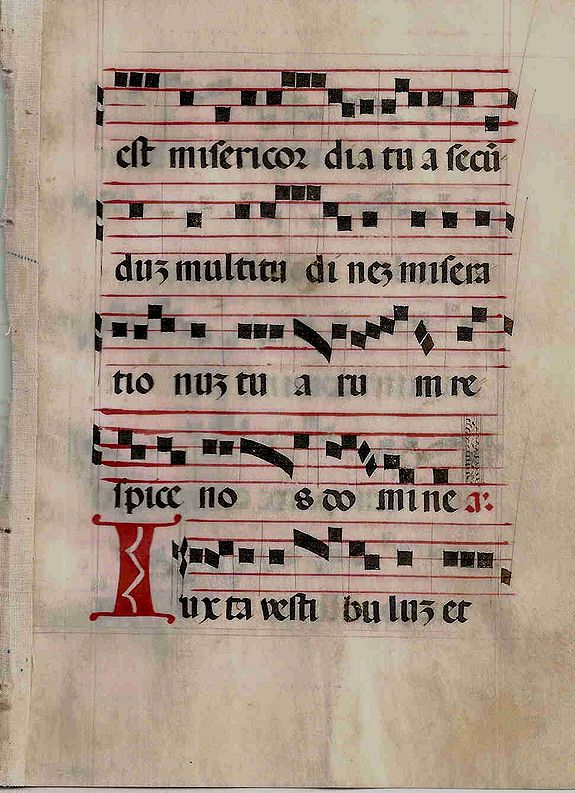 est misericor dia tu a secū
duʒ multitu di neʒ misera
tio nuʒ tu a ru m re
spice no s do mine a:
Iuxta vesti buluʒ et